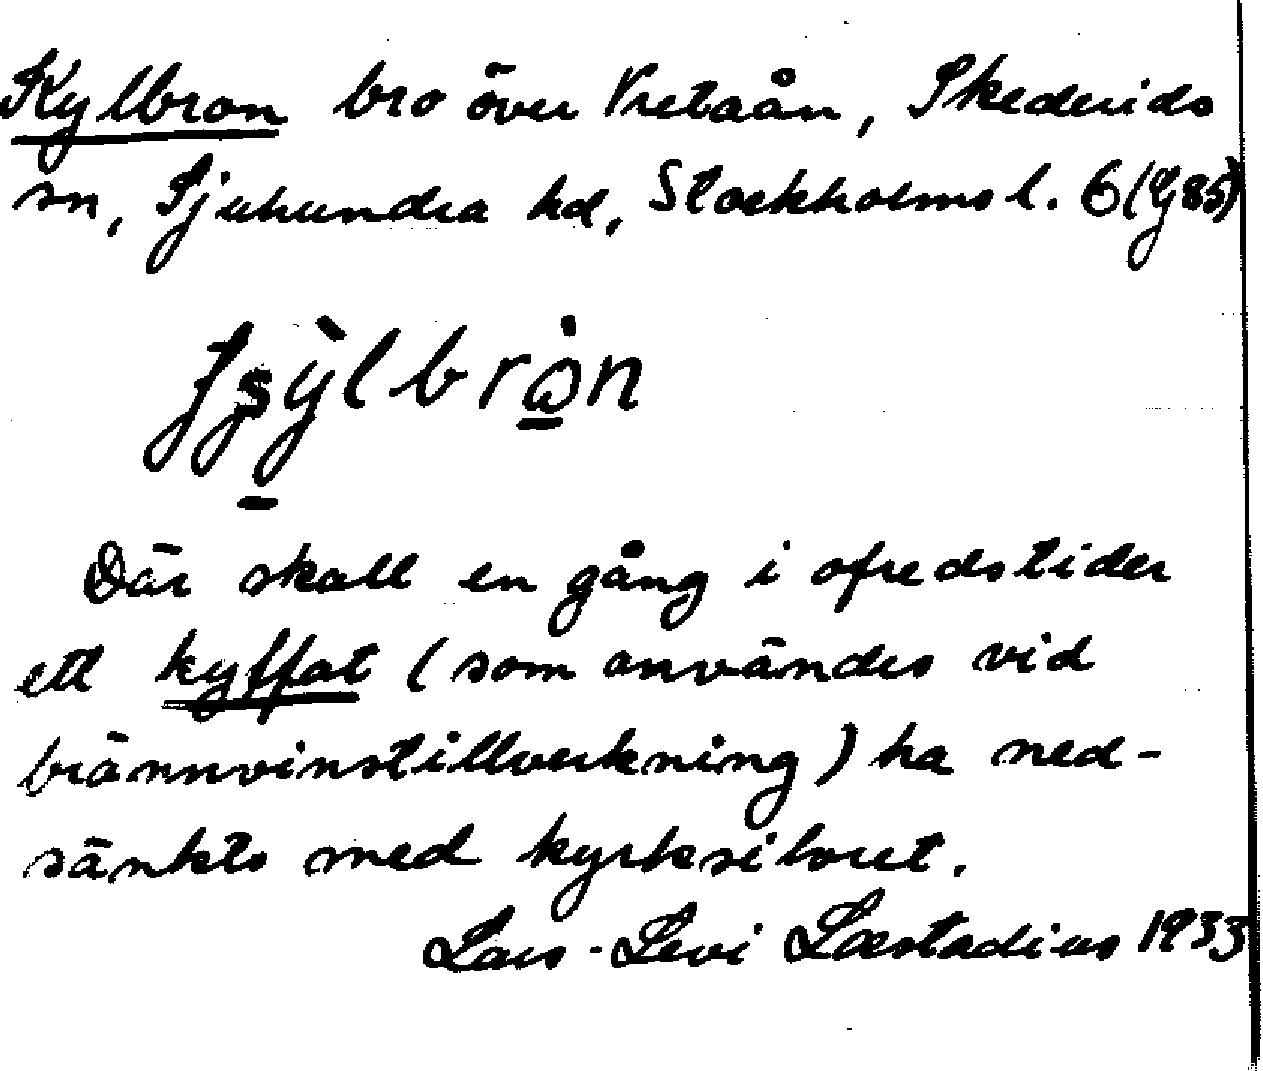 Kylbron bro över Vretaån, Skederids
sn, Sjuhundra hd, Stockholms l. 6 (G85)
Där skall en gång i ofredstider
ett kyffat (som användes vid
brännvinstillverkning) ha ned-
sänkts med kyrksilvret.
Lars-Levi Læstadius 1933